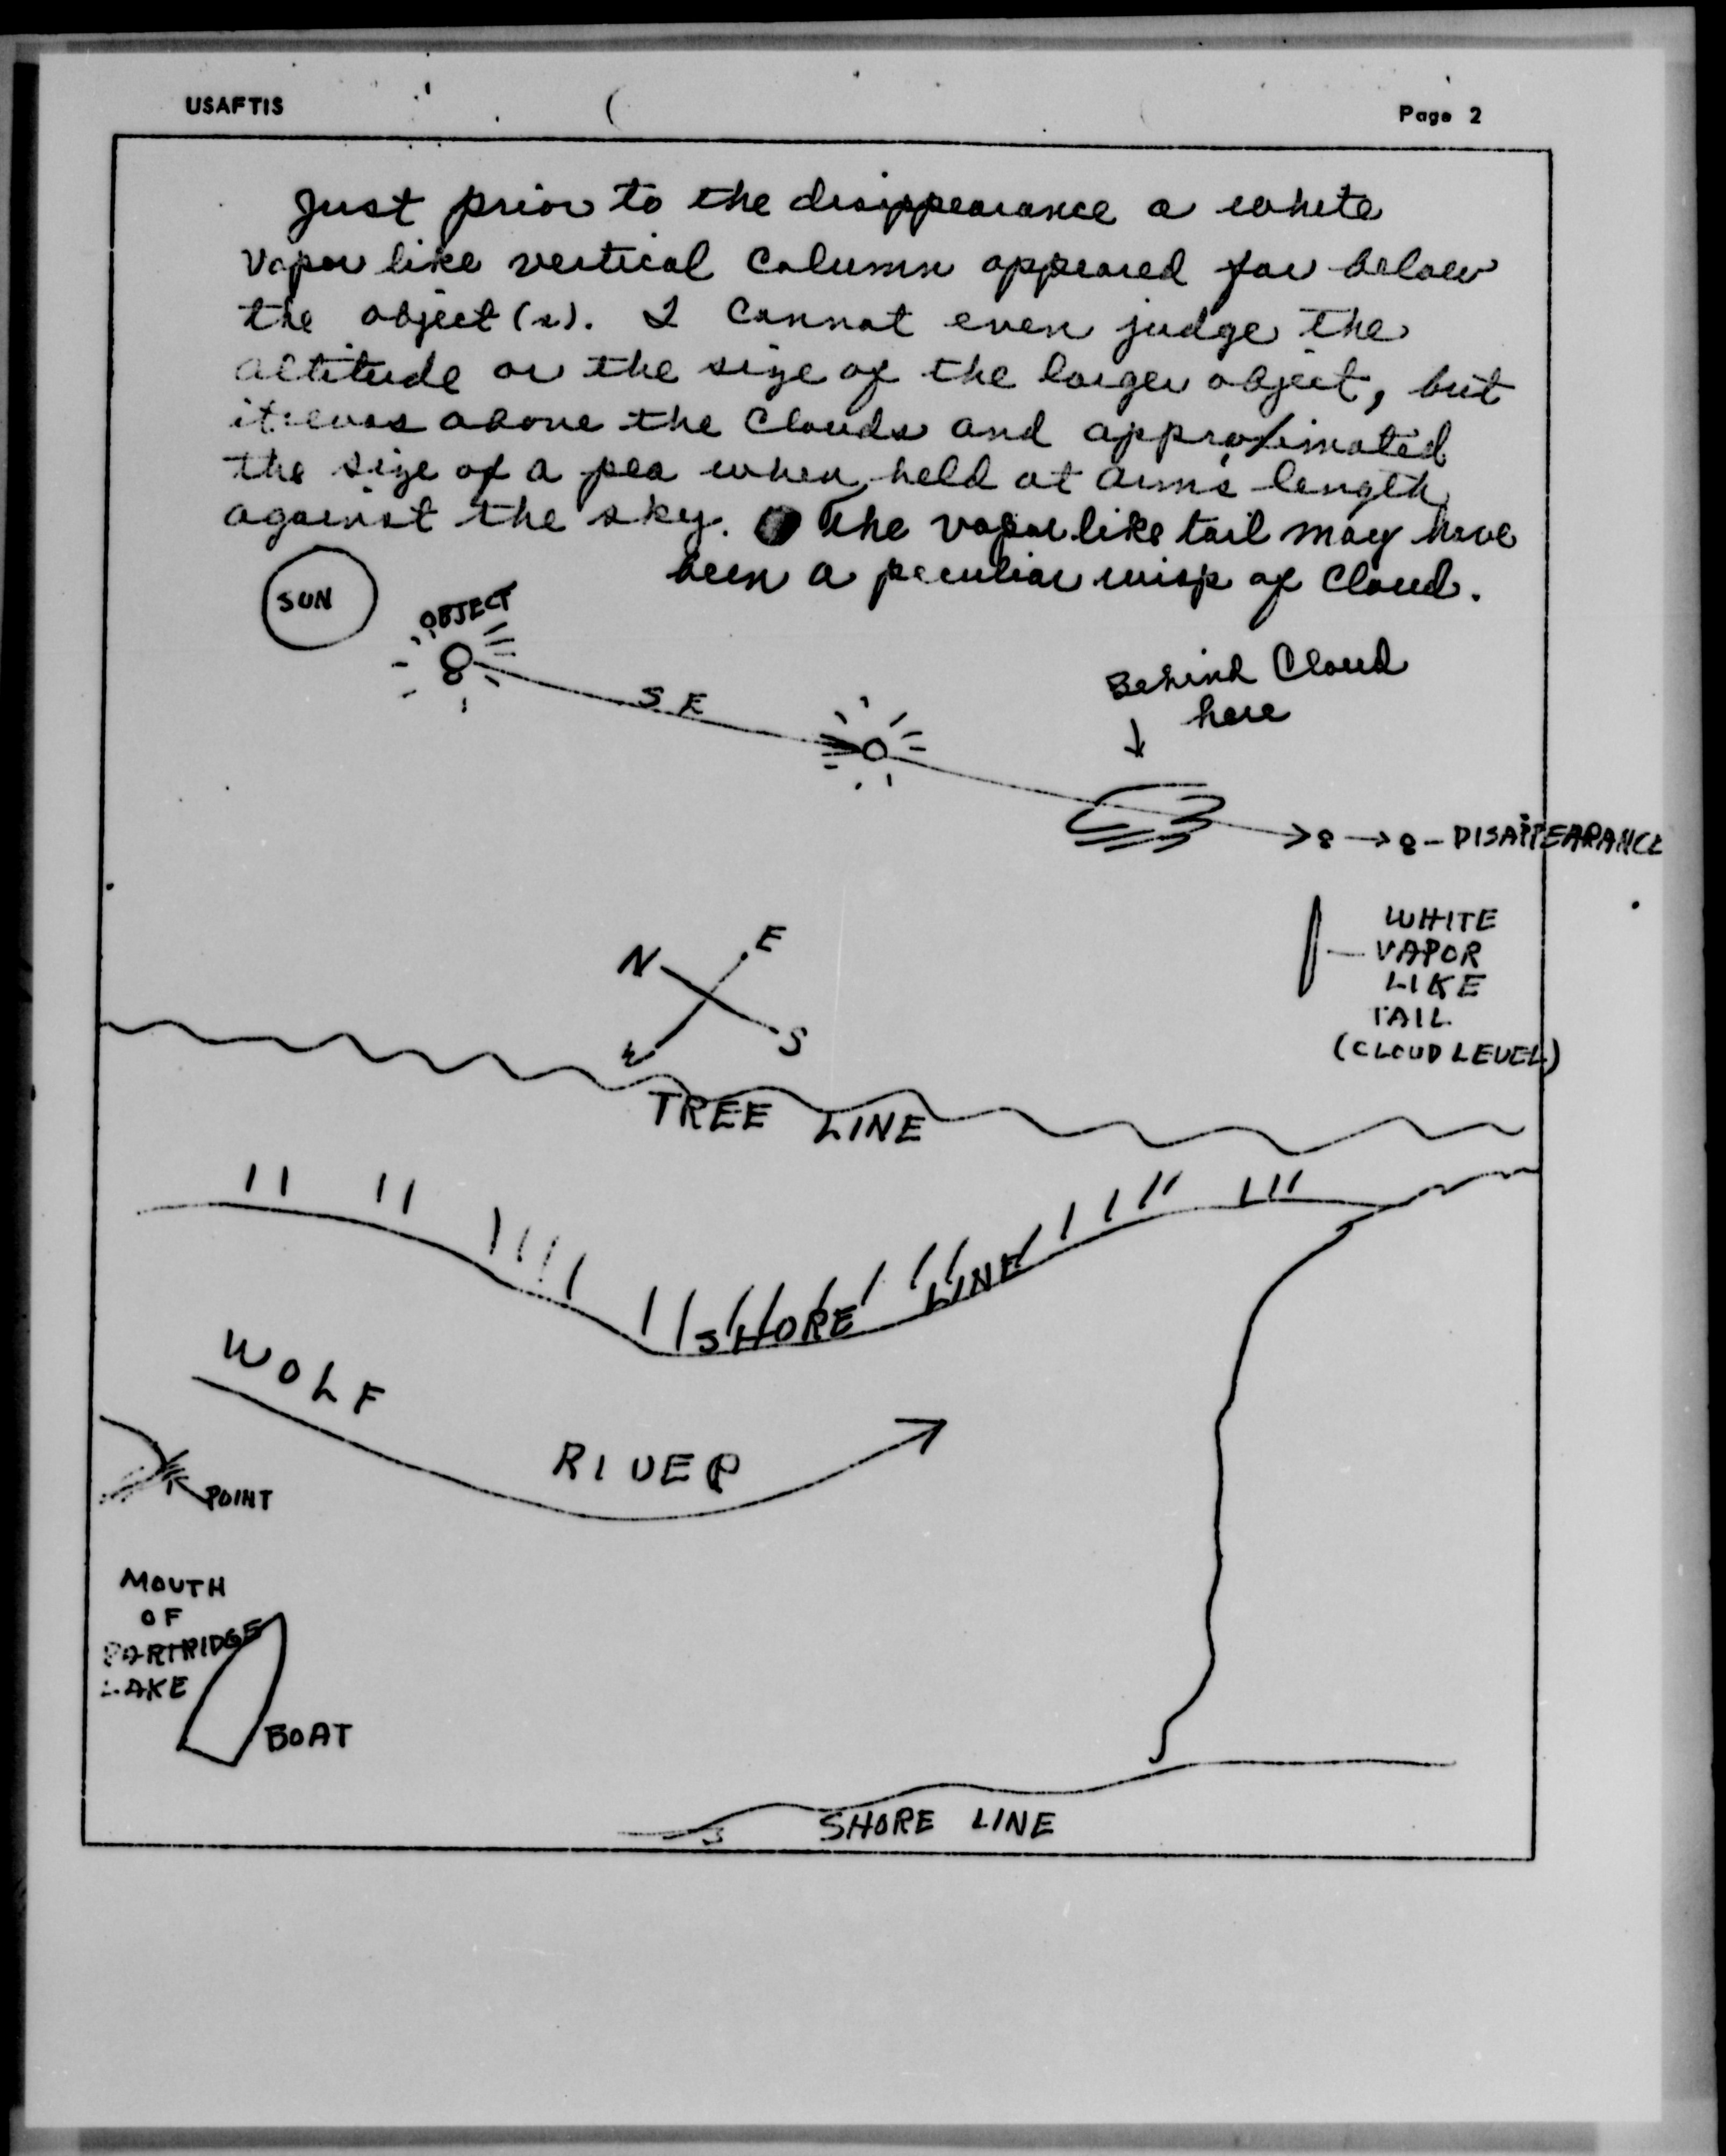 USAFTIS
Page 2
Just prior to the disappearance a white
vapor like vertical column appeared far below
the object(s). I cannot even judge the
altitude or the size of the larger object, but
it was above the clouds and approximated
the size of a pea when held at arm's length
against the sky. The vapor like tail may have
been a peculiar wisp of cloud.
SUN
OBJECT
SE
Behind Cloud
here
DISAPPEARANCE
WHITE
VAPOR
LIKE
TAIL
(CLOUD LEVEL)
N
E
W
S
TREE LINE
SHORE LINE
WOLF
RIVER
POINT
MOUTH
OF
PARTRIDGE
LAKE
BOAT
SHORE LINE